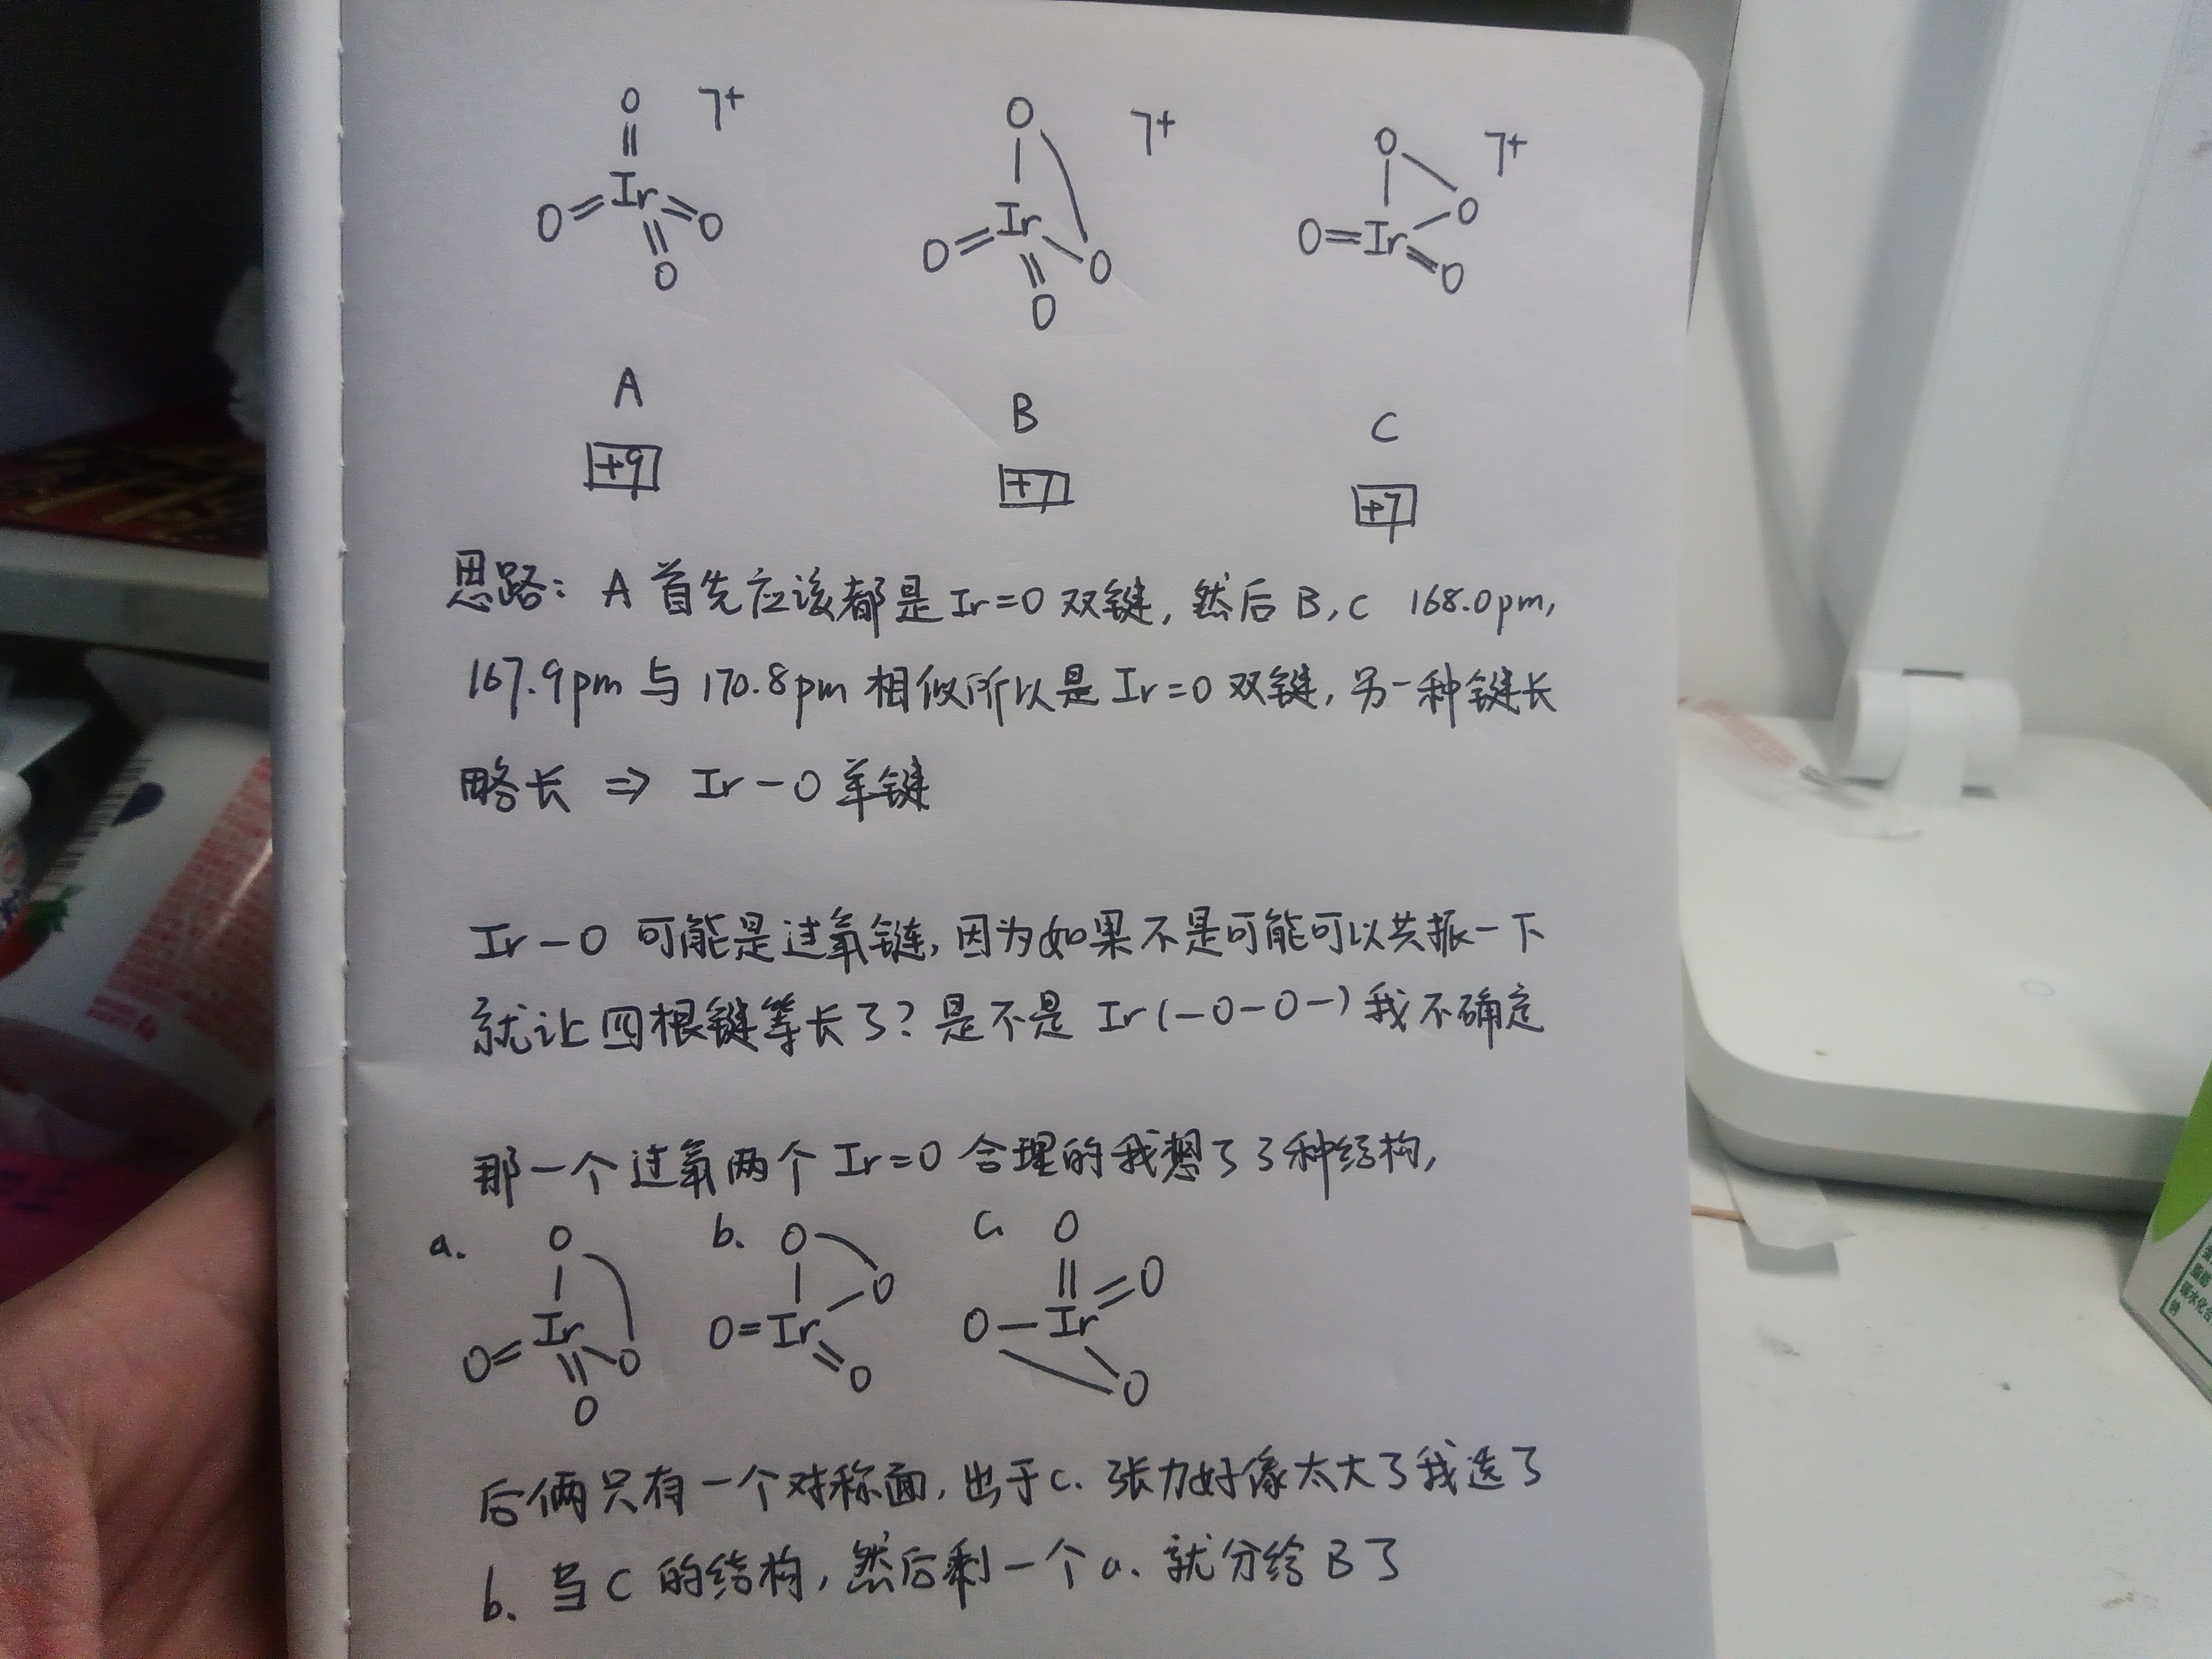 O ㄱ+ O ㄱ+ O ㄱ+
Ir Ir Ir
O O O O O O=Ir O
O O
A B C
+9 +7 +7
思路： A 首先应该都是Ir=O 双键, 然后 B, C 168.0pm,
167.9pm 与 170.8pm 相似所以是 Ir=O 双键, 另一种键长
略长 ⇒ Ir-O 单键
Ir-O 可能是过氧链, 因为如果不是可能可以共振一下
就让四根键等长了? 是不是 Ir(-O-O-) 我不确定
那一个过氧两个 Ir=O 合理的我想了3种结构,
a. O b. O O c. O
Ir O=Ir O-Ir O
O= O O O
O
后俩只有一个对称面, 出于c. 张力好像太大了我选了
b. 当 C 的结构, 然后剩一个 a. 就分给 B 了